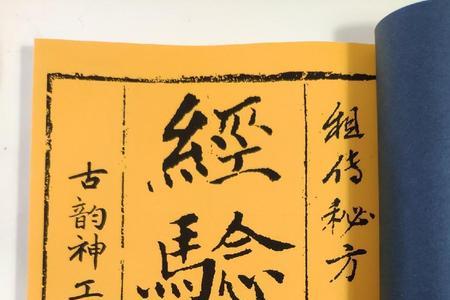 祖传秘方
經驗
古韵神工